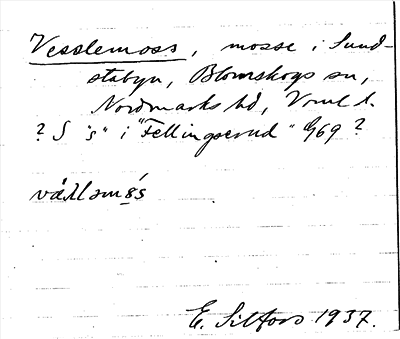 Vesslemoss, mosse i Sund-
stabyn, Blomskogs sn,
Nordmarks hd, Vrml l.
? S "s" i "Fellingserud" G69 ?
E. Silfors 1937.